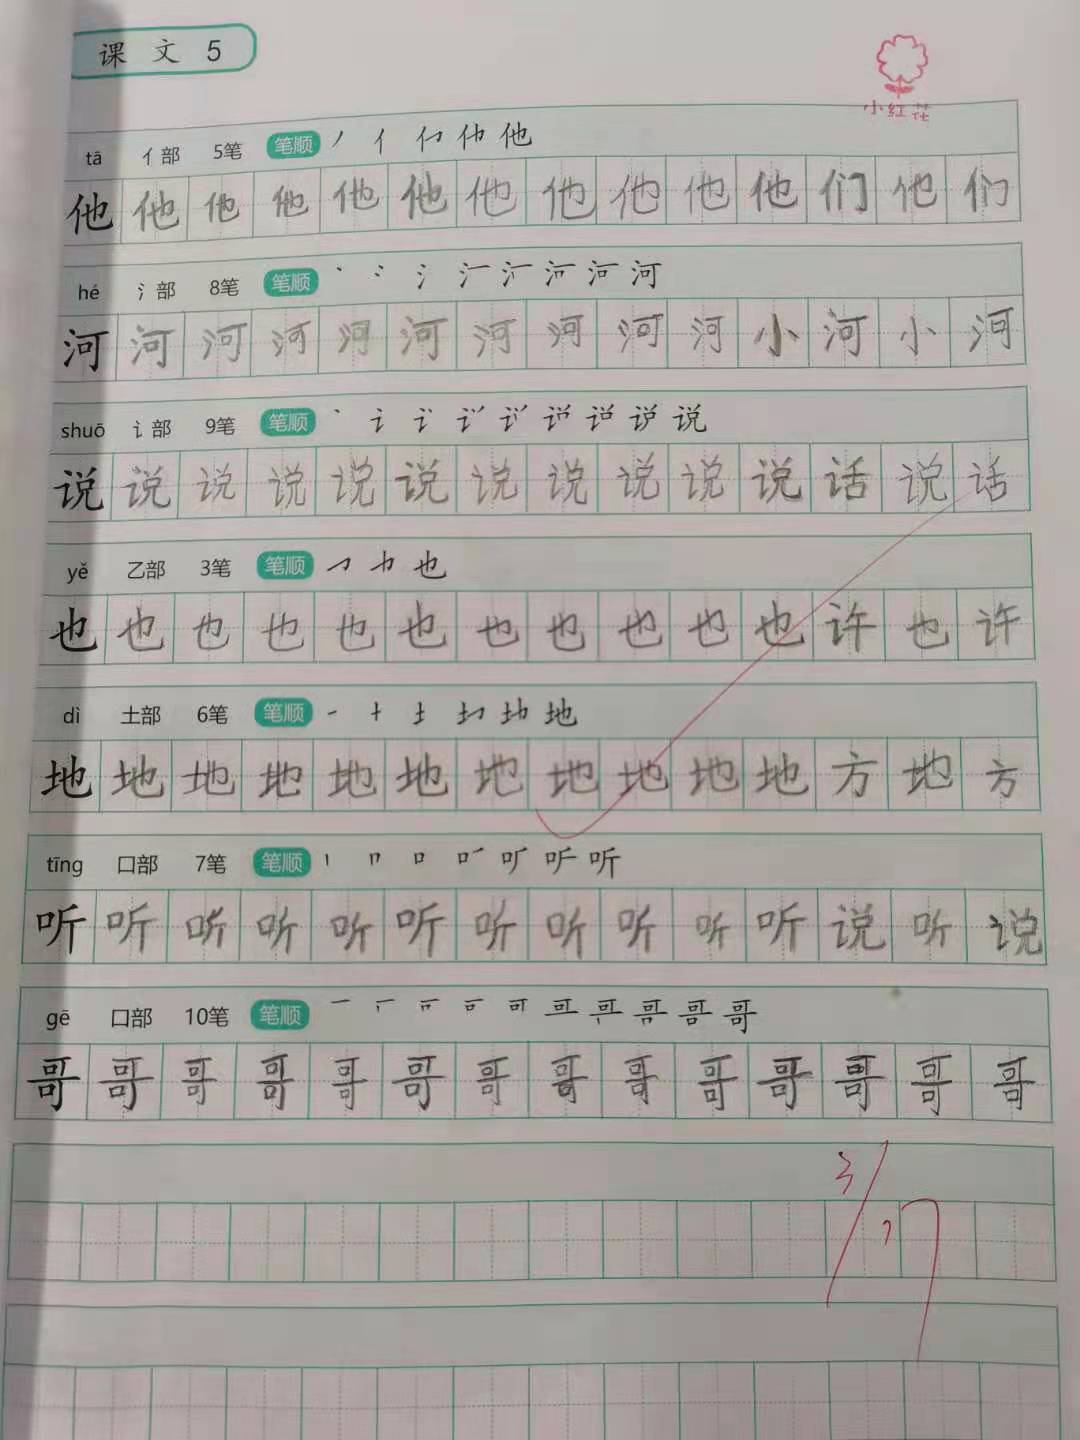 课文 5
小红花
tā 亻部 5笔 笔顺 丿 亻 他
他 他 他 他 他 他 他 他 他 他 他 们 他 们
hé 氵部 8笔 笔顺 丶 冫 氵 河
河 河 河 河 河 河 河 河 河 河 小 河 小 河
shuō 讠部 9笔 笔顺 丶 讠 说
说 说 说 说 说 说 说 说 说 说 说 话 说 话
yě 乙部 3笔 笔顺 也
也 也 也 也 也 也 也 也 也 也 也 许 也 许
dì 土部 6笔 笔顺 一 十 土 地
地 地 地 地 地 地 地 地 地 地 地 方 地 方
tīng 口部 7笔 笔顺 丨 口 听
听 听 听 听 听 听 听 听 听 听 听 说 听 说
gē 口部 10笔 笔顺 一 可 哥
哥 哥 哥 哥 哥 哥 哥 哥 哥 哥 哥 哥 哥 哥